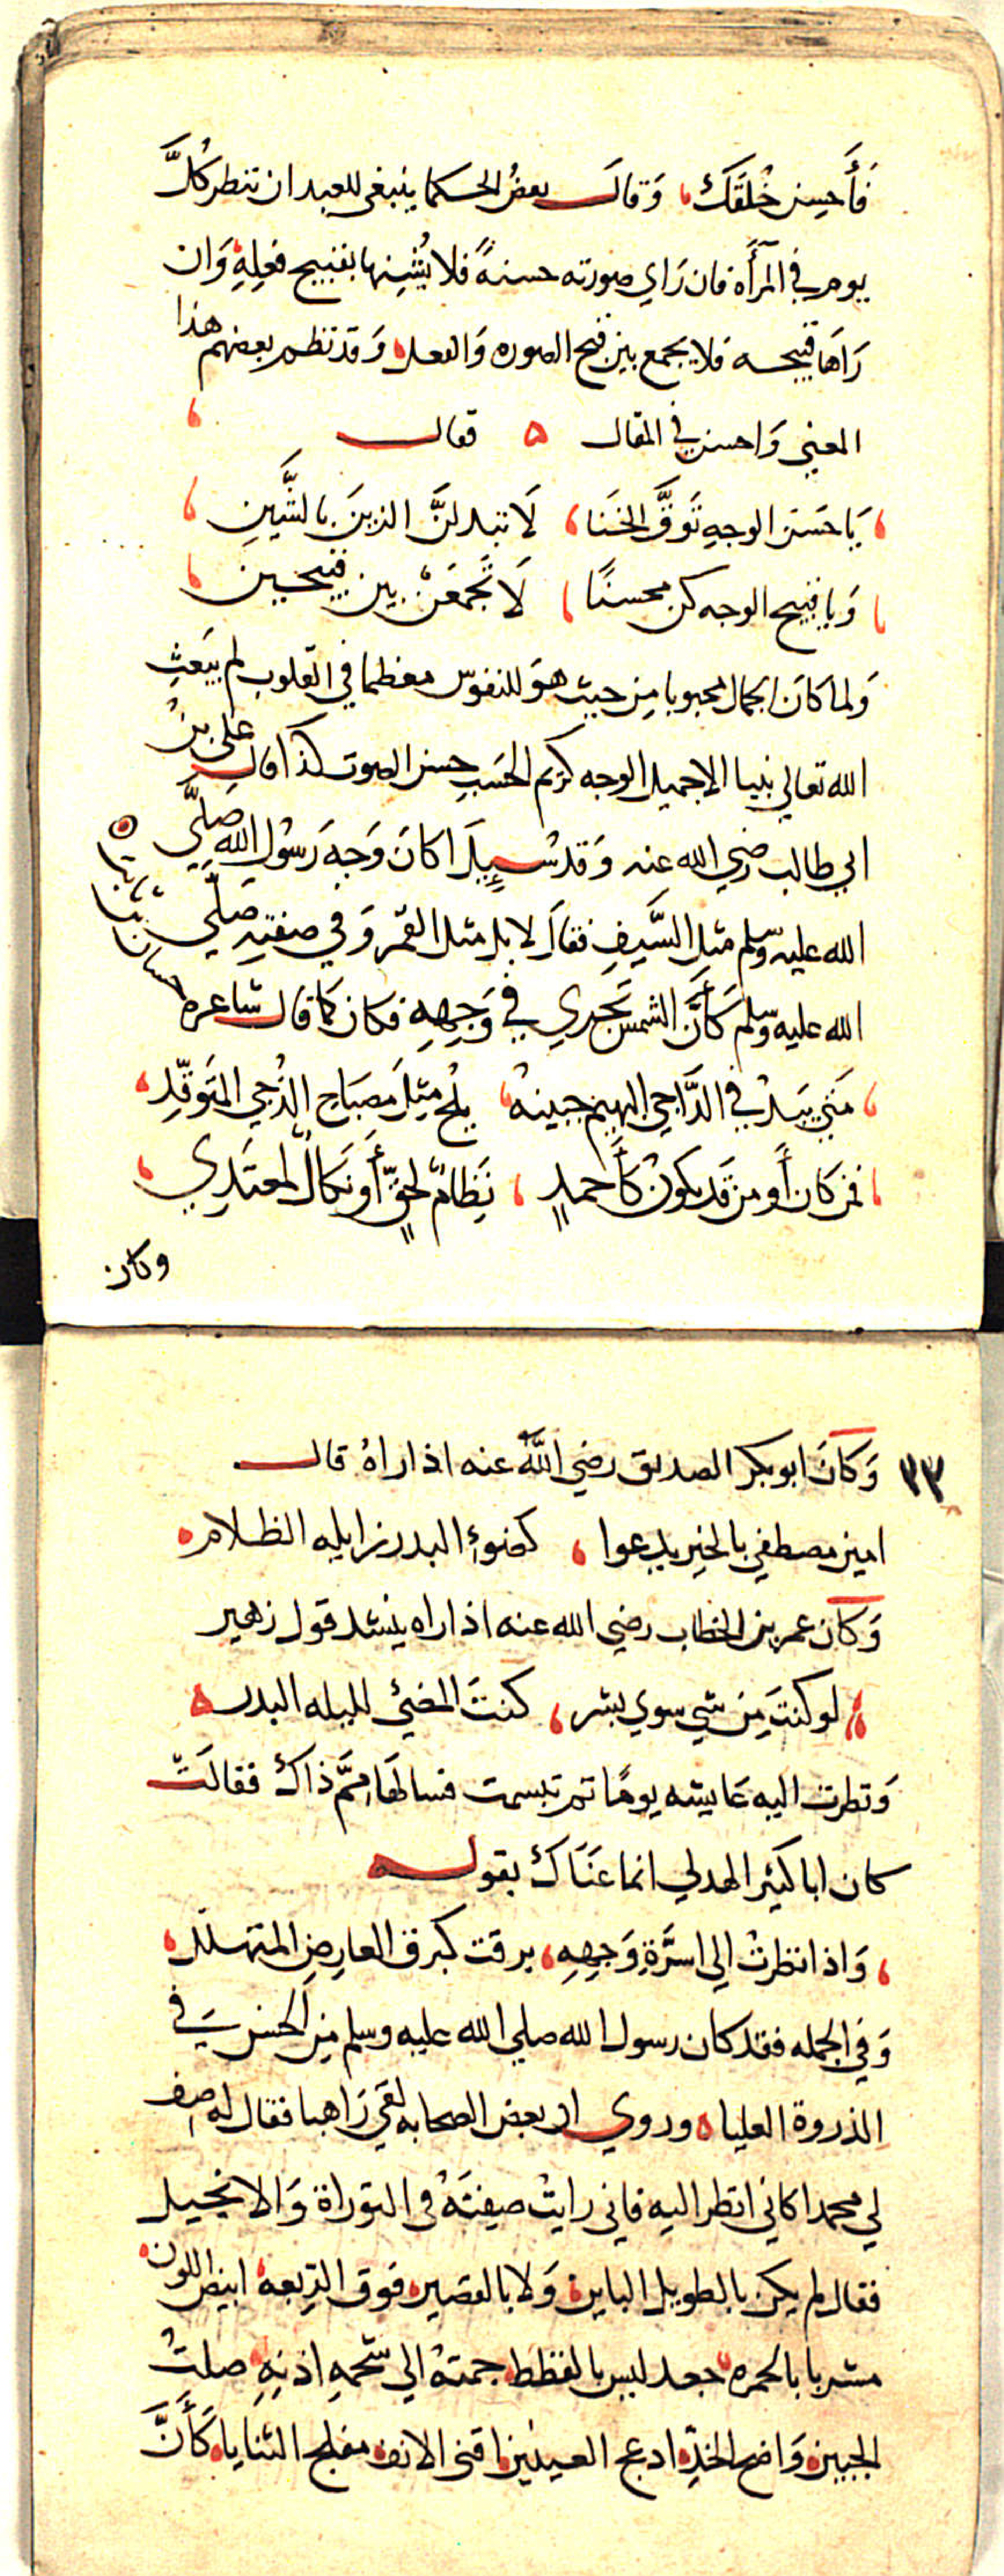 فَأَحسِن خُلقَكَ وَقالَ بعضُ الحكما ينبغي للعبد ان تنظر كلَّ
يوم في المرأَه فان رَاي صورته حسنةً فلا يُشِنها بقبيح فعلِهِ وَان
رَاها قبيحه فلا يجمع بين قبح الصوره وَالفعل وَقد نظم بعضهم هذا
المعني وَاحسن في المقال ٥ فقال
يَا حَسَن الوجهِ تَوَقَّ الخنَا لَا تبدلنَّ الزينَ بالشَّينِ
وَيا قبيح الوجه كن محسنًا لَا تَجمَعَنْ بين قبيحين
وَلما كانَ الجمال محبوبا مِن حيث هوَ للنفوس معظما في القلوب لم يبَعثِ
الله تعالي نبيا الا جميل الوجه كريم الحَسَبِ حسن الصوت كذا قال علي بنُ
ابي طالب رضي الله عنه وَقد سُيِلَ اكانَ وَجهَ رَسُول الله صَلَّي
الله عليه وسلم مثل السَّيفِ فقالَ لا بل مثل القمر وَفي صفتِهِ صَلَّي
الله عليه وسلم كَأَنَّ الشمسَ تجري في وَجهِهِ فكان كَما قال شاعره
حسان بن ثابت ٥
مَتي يبَدُ في الدَّاجي البهيم جبينهُ يلُح مِثلَ مِصبَاح الدُّجي المتوَقِّدِ
فمن كان أَو من قَد يكونُ كَأَحمدٍ نِظَامٌ لحقٍّ أَو نَكالٌ لمعتَدِي
وكان
٣٣ وَكانَ ابو بكر الصديق رضي اللَّه عنه اذا راهُ قال
امين مصطفي بالخير يدعوا كضوءِ البدر زايله الظلام
وَكان عمر بن الخطاب رضي الله عنه اذا راه ينشد قول زهير
لو كنتَ مِن شي سوي بشر كنتَ المضيُ لليله البدر
وَنظرت اليه عَايشه يومًا ثم تبسمت فسالها مِمَّ ذاكَ فقالَتْ
كان ابا كبير الهدلي انما عَنَاكَ بقوله
وَاذا نظرتْ الي اسرَّةِ وَجهِهِ برقت كبرق العارِضِ المتهلّل
وَفي الجمله فقد كان رسول الله صلي الله عليه وسلم مِن الحسن في
الذروة العليا وروي ان بعض الصحابه لقي رَاهبا فقال له صف
لي محمدا كاني انظر اليه فاني رايتُ صِفتَهُ في التوراة وَالانجيل
فقال لم يكن بالطويل الباين وَلا بالقصير فوق الرِّبعه ابيض اللون
مشربا بالحمره جعد ليس بالقطط جمتهُ الي شحمةِ اذنِهِ صلتُ
الجبين وَاضح الخدِّ ادعج العينين اقني الانف مفلج الثنايا كَأَنَّ